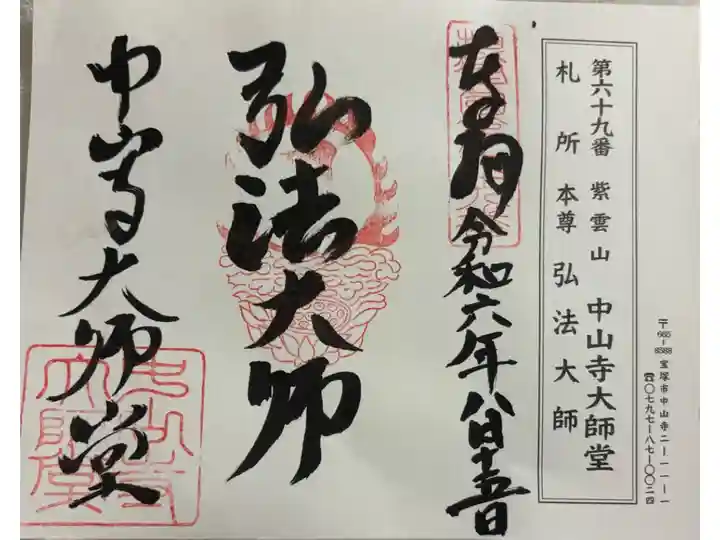 〒665-8588 宝塚市中山寺二-一一-一
☎〇七九七-八七-〇〇二四
第六十九番 紫雲山 中山寺大師堂
札所本尊 弘法大師
奉拝 令和六年八月十五日
弘法大師
中山寺大師堂
中山寺大師堂